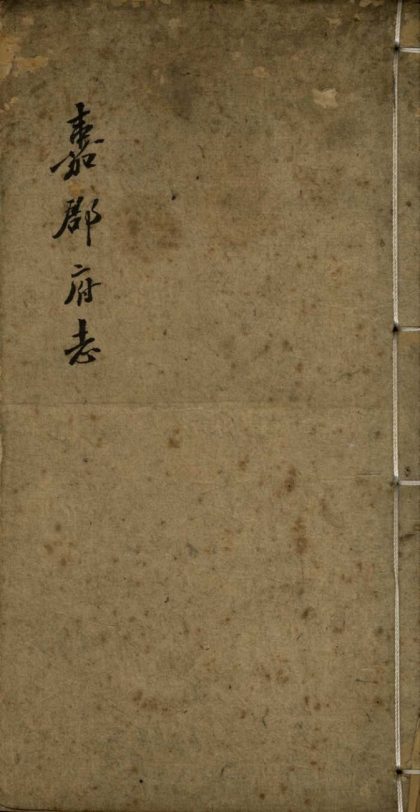 嘉郡府志